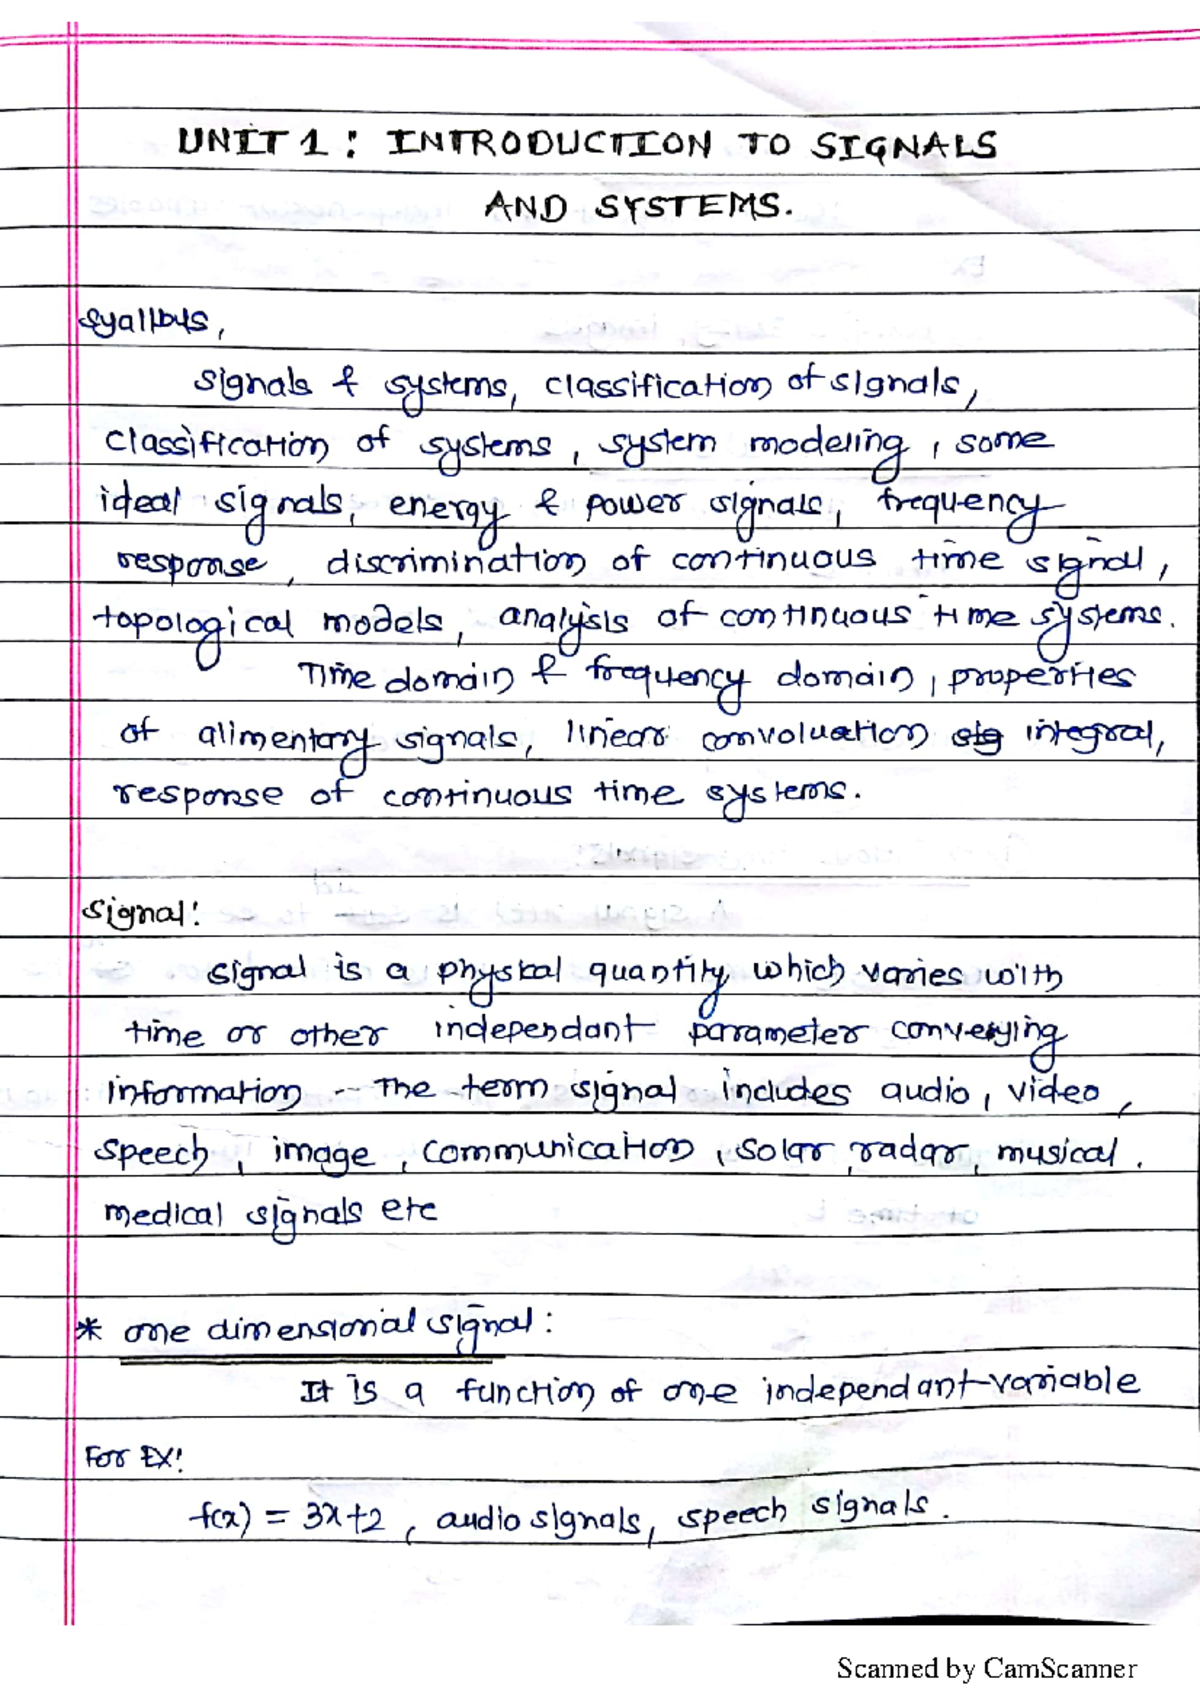 UNIT 1 : INTRODUCTION TO SIGNALS
AND SYSTEMS.
syallbus,
signals & systems, classification of signals,
classification of systems, system modeling, some
ideal signals, energy & power signals, frequency
response, discrimination of continuous time signal,
topological models, analysis of continuous time systems.
Time domain & frequency domain, properties
of alimentary signals, linear convoluation sig integral,
response of continuous time systems.
signal:
signal is a physical quantity which varies with
time or other independant parameter converying
information. The term signal includes audio, video,
speech, image, communication, solar, radar, musical.
medical signals etc
* one dimensional signal:
It is a function of one independant variable
For EX:
f(x) = 3x+2, audio signals, speech signals.
Scanned by CamScanner